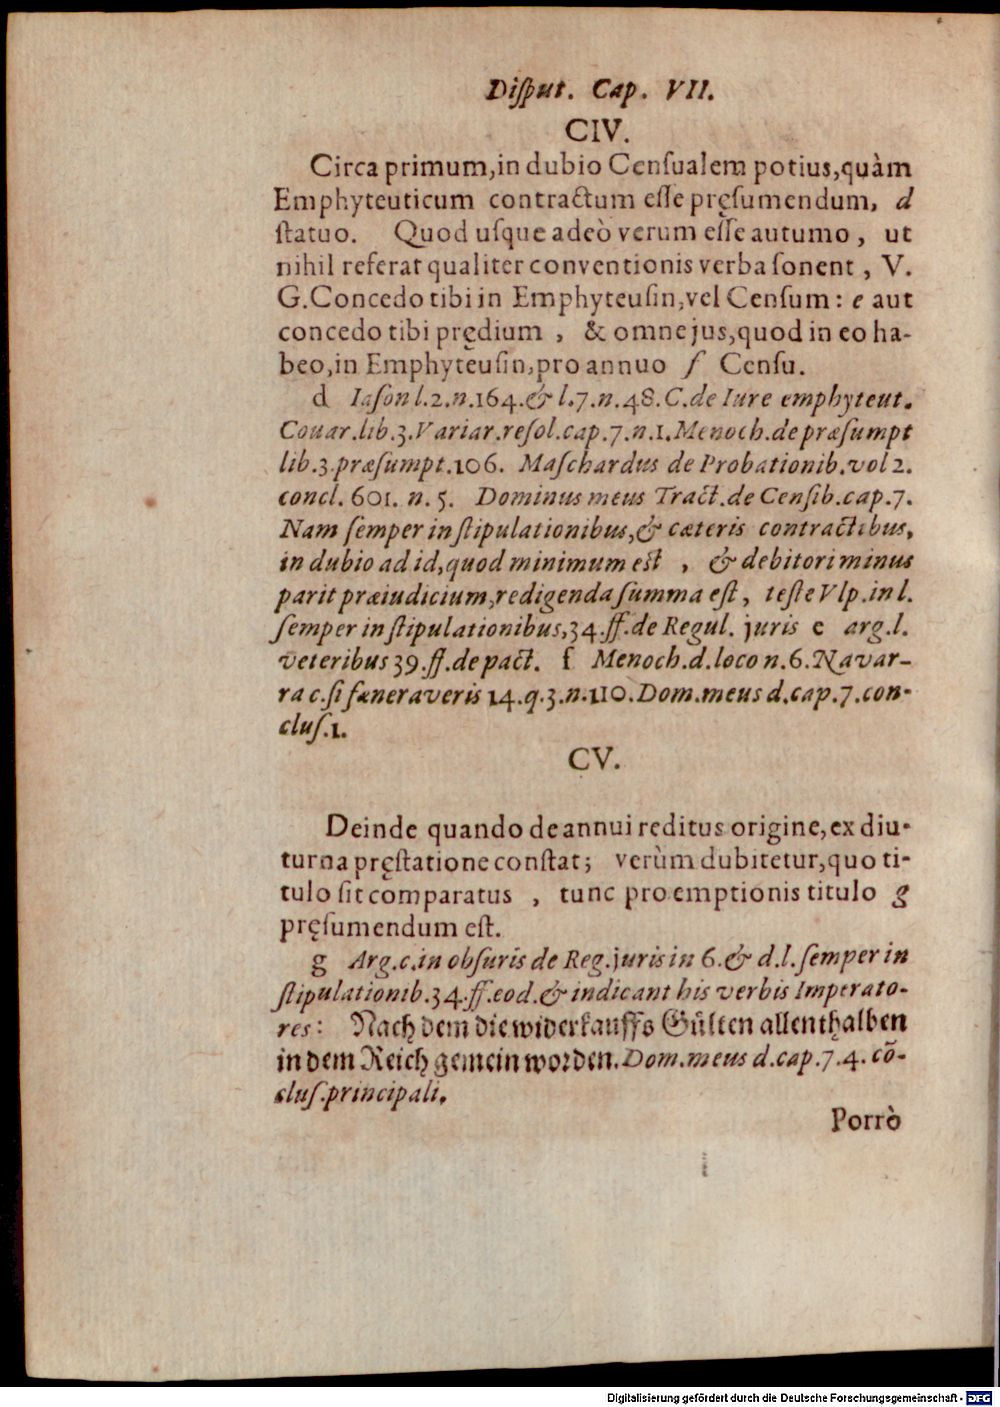 Diſput. Cap. VII.
CIV.
Circa primum, in dubio Cenſualem potius, quàm
Emphyteuticum contractum eſſe pręſumendum, d
ſtatuo. Quod uſque adeò verum eſſe autumo, ut
nihil referat qualiter conventionis verba ſonent, V.
G. Concedo tibi in Emphyteuſin, vel Cenſum: e aut
concedo tibi prędium, & omne jus, quod in eo ha-
beo, in Emphyteuſin, pro annuo f Cenſu.
d Iaſon l.2.n.164.& l.7.n.48.C.de Iure emphyteut.
Couar.lib.3.Variar.reſol.cap.7.n.1.Menoch.de præſumpt
lib.3.præſumpt.106. Maſchardus de Probationib.vol 2.
concl. 601. n. 5. Dominus meus Tract.de Cenſib.cap.7.
Nam ſemper in ſtipulationibus, & cæteris contractibus,
in dubio ad id, quod minimum eſt, & debitori minus
parit præiudicium, redigenda ſumma eſt, teſte Vlp.in l.
ſemper in ſtipulationibus, 34.ff.de Regul. juris e arg.l.
veteribus 39.ff.de pact. f Menoch.d.loco n.6.Navar-
ra c.ſi fæneraveris 14.q.3.n.110.Dom.meus d.cap.7.con-
cluſ.1.
CV.
Deinde quando de annui reditus origine, ex diu-
turna pręſtatione conſtat; verùm dubitetur, quo ti-
tulo ſit comparatus, tunc pro emptionis titulo g
pręſumendum eſt.
g Arg.c.in obſuris de Reg.juris in 6.& d.l.ſemper in
ſtipulationib.34.ff.eod.& indicant his verbis Imperato-
res: Nach dem die widerkauffs Gülten allenthalben
in dem Reich gemein worden. Dom.meus d.cap.7.4. cō-
cluſ.principali.
Porrò
Digitalisierung gefördert durch die Deutsche Forschungsgemeinschaft - DFG